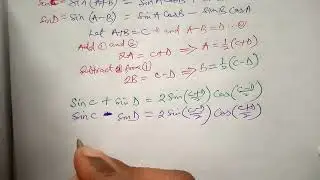 SinC = Sin(A+B) = SinA CosB + SinB CosA
SinD = Sin(A-B) = SinA CosB - SinB CosA
Let A+B = C and A-B = D
Add ① and ②
2A = C+D ⇒ A = ½(C+D)
Subtract ② from ①
2B = C-D ⇒ B = ½(C-D)
SinC + SinD = 2 Sin((C+D)/2) Cos((C-D)/2)
SinC - SinD = 2 Sin((C-D)/2) Cos((C+D)/2)